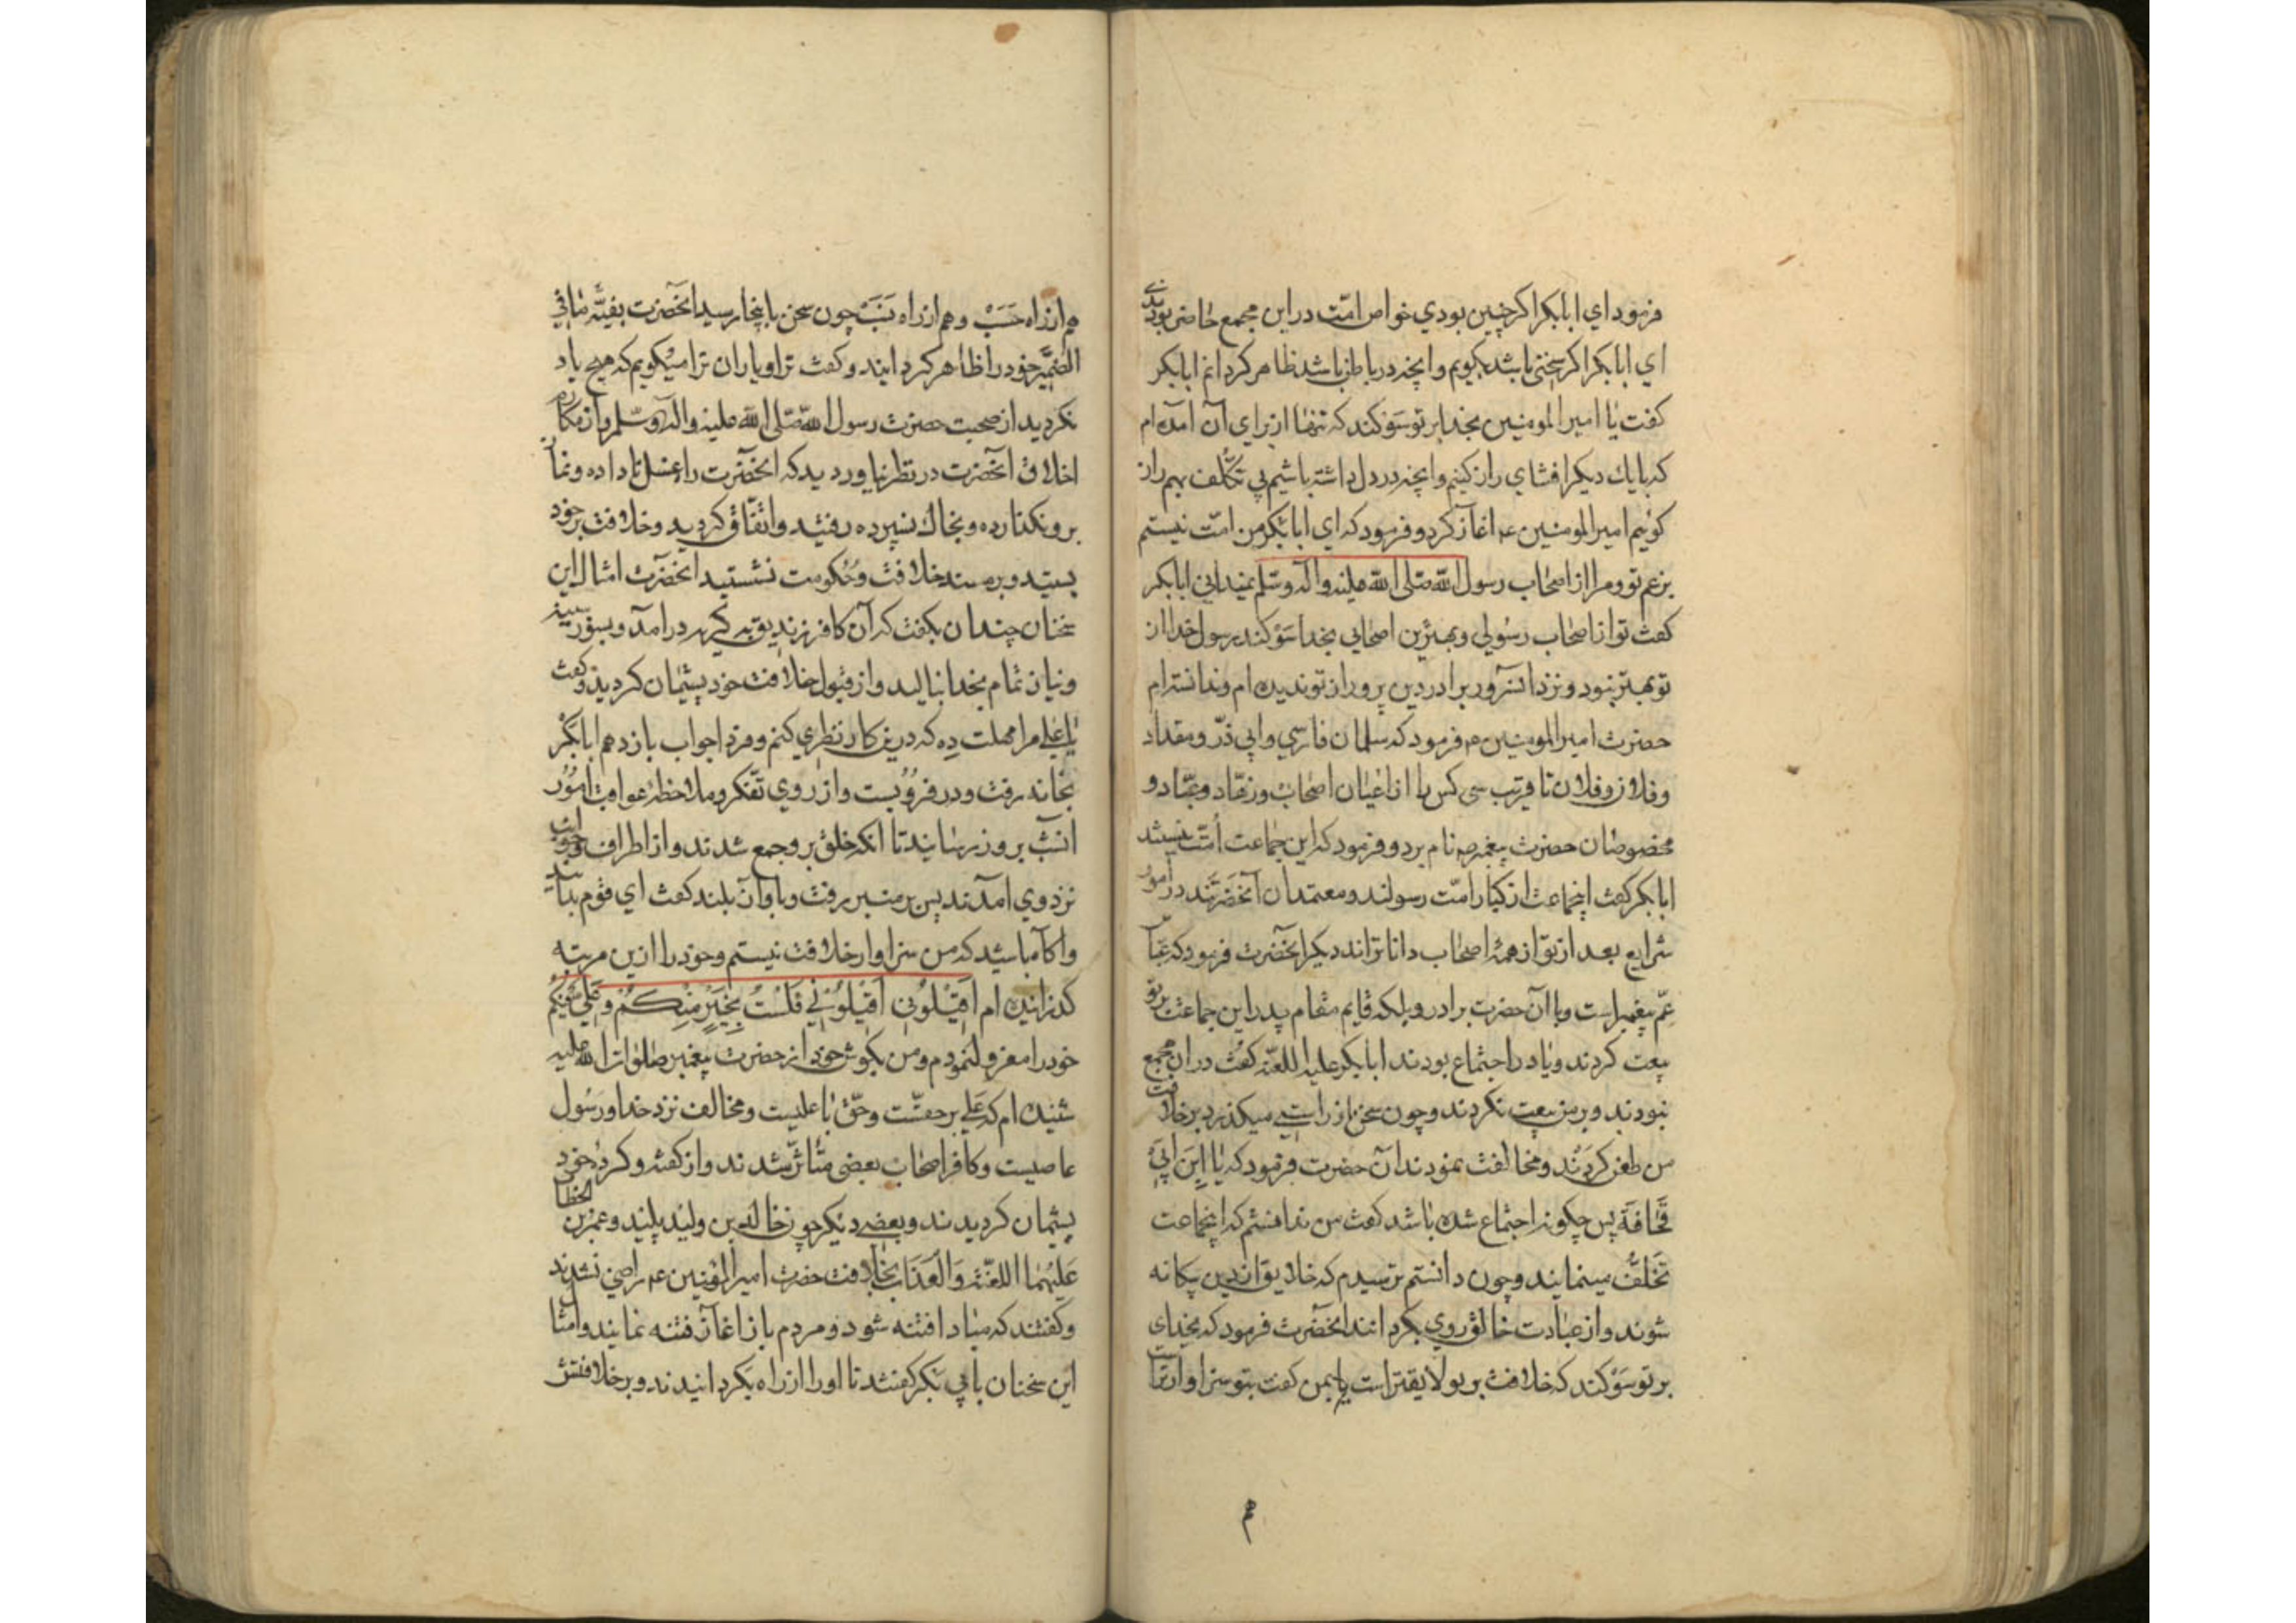 فرمود ای ابابکر اکر چنین بودی خواص امّت در این مجمع حاضر بودندی
ای ابابکر اکر سخنی باشد بکویم و آنچه در باطن باشد ظاهر کردانم ابابکر
کفت یا امیر المومنین بخدا بر تو سَوکند که تنها از برای آن آمده ام
که با یك دیکر افشای راز کنیم و آنچه در دل داشته باشیم بی تکلّف بهم راز
کوئیم امیر المومنین ع اغاز کرد و فرمود که ای ابابکر من امّت نیستم
بزعم تو و مرا از اصحاب رسول الله صلی الله علیه و آله و سلم نمیدانی ابابکر
کفت تو از اصحاب رسولی و بهترین اصحابی بخدا سَوکند رسول خدا را از
تو بهتر نبود و نزد آنسرور برادر دین پرور از تو ندیده ام و ندانسته ام
حضرت امیر المومنین ع فرمود که سلمان فارسی و ابی ذرّ و مقداد
و فلان و فلان تا قریب سی کس را از اعیان اصحاب و زهّاد و عبّاد و
مخصوصان حضرت پیغمبر ص نام برد و فرمود که این جماعت اُمّت نیستند
ابابکر کفت اینجماعت از کبار امّت رسولند و معتمدان آنحضرتند در امور
شرایع بعد از تو از همه اصحاب داناتراند دیکر آنحضرت فرمود که عبّاس
عمّ پیغمبر است و با آن حضرت برادر و بلکه قایم مقام پدر این جماعت بر تو
بیعت کردند و یا در اجتماع بودند ابابکر علیه اللعنه کفت در آن مجمع
نبودند و بر من بیعت نکردند و چون سخن از راستی میکذرد بر خلافت
من طعن کردند و مخالفت نمودند آن حضرت فرمود که یا اِبنَ اَبی
قُحافَة پس چکونه اجتماع شده باشد کفت من ندانستم که اینجماعت
تخلّف مینمایند و چون دانستم ترسیدم که خلایق از دین بیکانه
شوند و از عبادت خالق روی بکردانند آنحضرت فرمود که بخدای
بر تو سَوکند که خلافت بر تو لایقتر است یا بمن کفت بتو سزاوارتر است
هم
هم از راه حَسَبْ و هم از راه نَسَبْ چون سخن باینجا رسید آنحضرت بقیّه مافی
الضمیر خود را ظاهر کردانید و کفت ترا و یاران ترا میکویم که هیچ یاد
نکردید از صحبت حضرت رسول الله صلی الله علیه و آله و سلم و از مکارم
اخلاق آنحضرت در نظر نیاوردید که آنحضرت را غسل نا داده و نماز
بر و نکذارده و بخاك نسپرده رفتید و اتّفاق کردید و خلافت بر خود
بستید و بر مسند خلافت و حکومت نشستید آنحضرت امثال این
سخنان چندان بکفت که آن کافر زندیق به کریه در آمد و بسوز سینه
و نیاز تمام بخدا بنالید و از قبول خلافت خود پشیمان کردید و کفت
یا علی مرا مهلت ده که درین کار نظری کنم و فردا جواب باز دهم ابابکر
بخانه رفت و در فرو بست و از روی تفکّر و ملاحظه عواقب امُور
انشب بروز رسانید تا آنکه خلق بر و جمع شدند و از اطراف و جوانب
نزد وی آمدند پس بر منبر رفت و باواز بلند کفت ای قوم بدانید
و آکاه باشید که من سزاوار خلافت نیستم و خود را ازین مرتبه
کذرانیده ام اَقیلُونی اَقیلُونی فَلَسْتُ بِخَیرٍ مِنکُم وَ عَلیٌ فیکُم
خود را معزول نمودم و من بکوش خود از حضرت پیغمبر صلوات الله علیه
شنیده ام که عَلی بر حقست و حقّ با علیست و مخالف نزد خدا و رَسُول
عاصیست و کافر اصحاب بعضی متأثّر شدند و از کفته و کرده خود
پشیمان کردیدند و بعضی دیکر چون خالد بن ولید پلید و عمر بن الخطاب
عَلَیهُمَا اللعْنَةُ وَ العَذاب بخلافت حضرت امیر المؤمنین ع راضی نشدند
و کفتند که مبادا فتنه شود و مردم باز اغاز فتنه نمایند و امثال
این سخنان بابی بکر کفتند تا او را از راه بکردانیدند و بر خلافتش